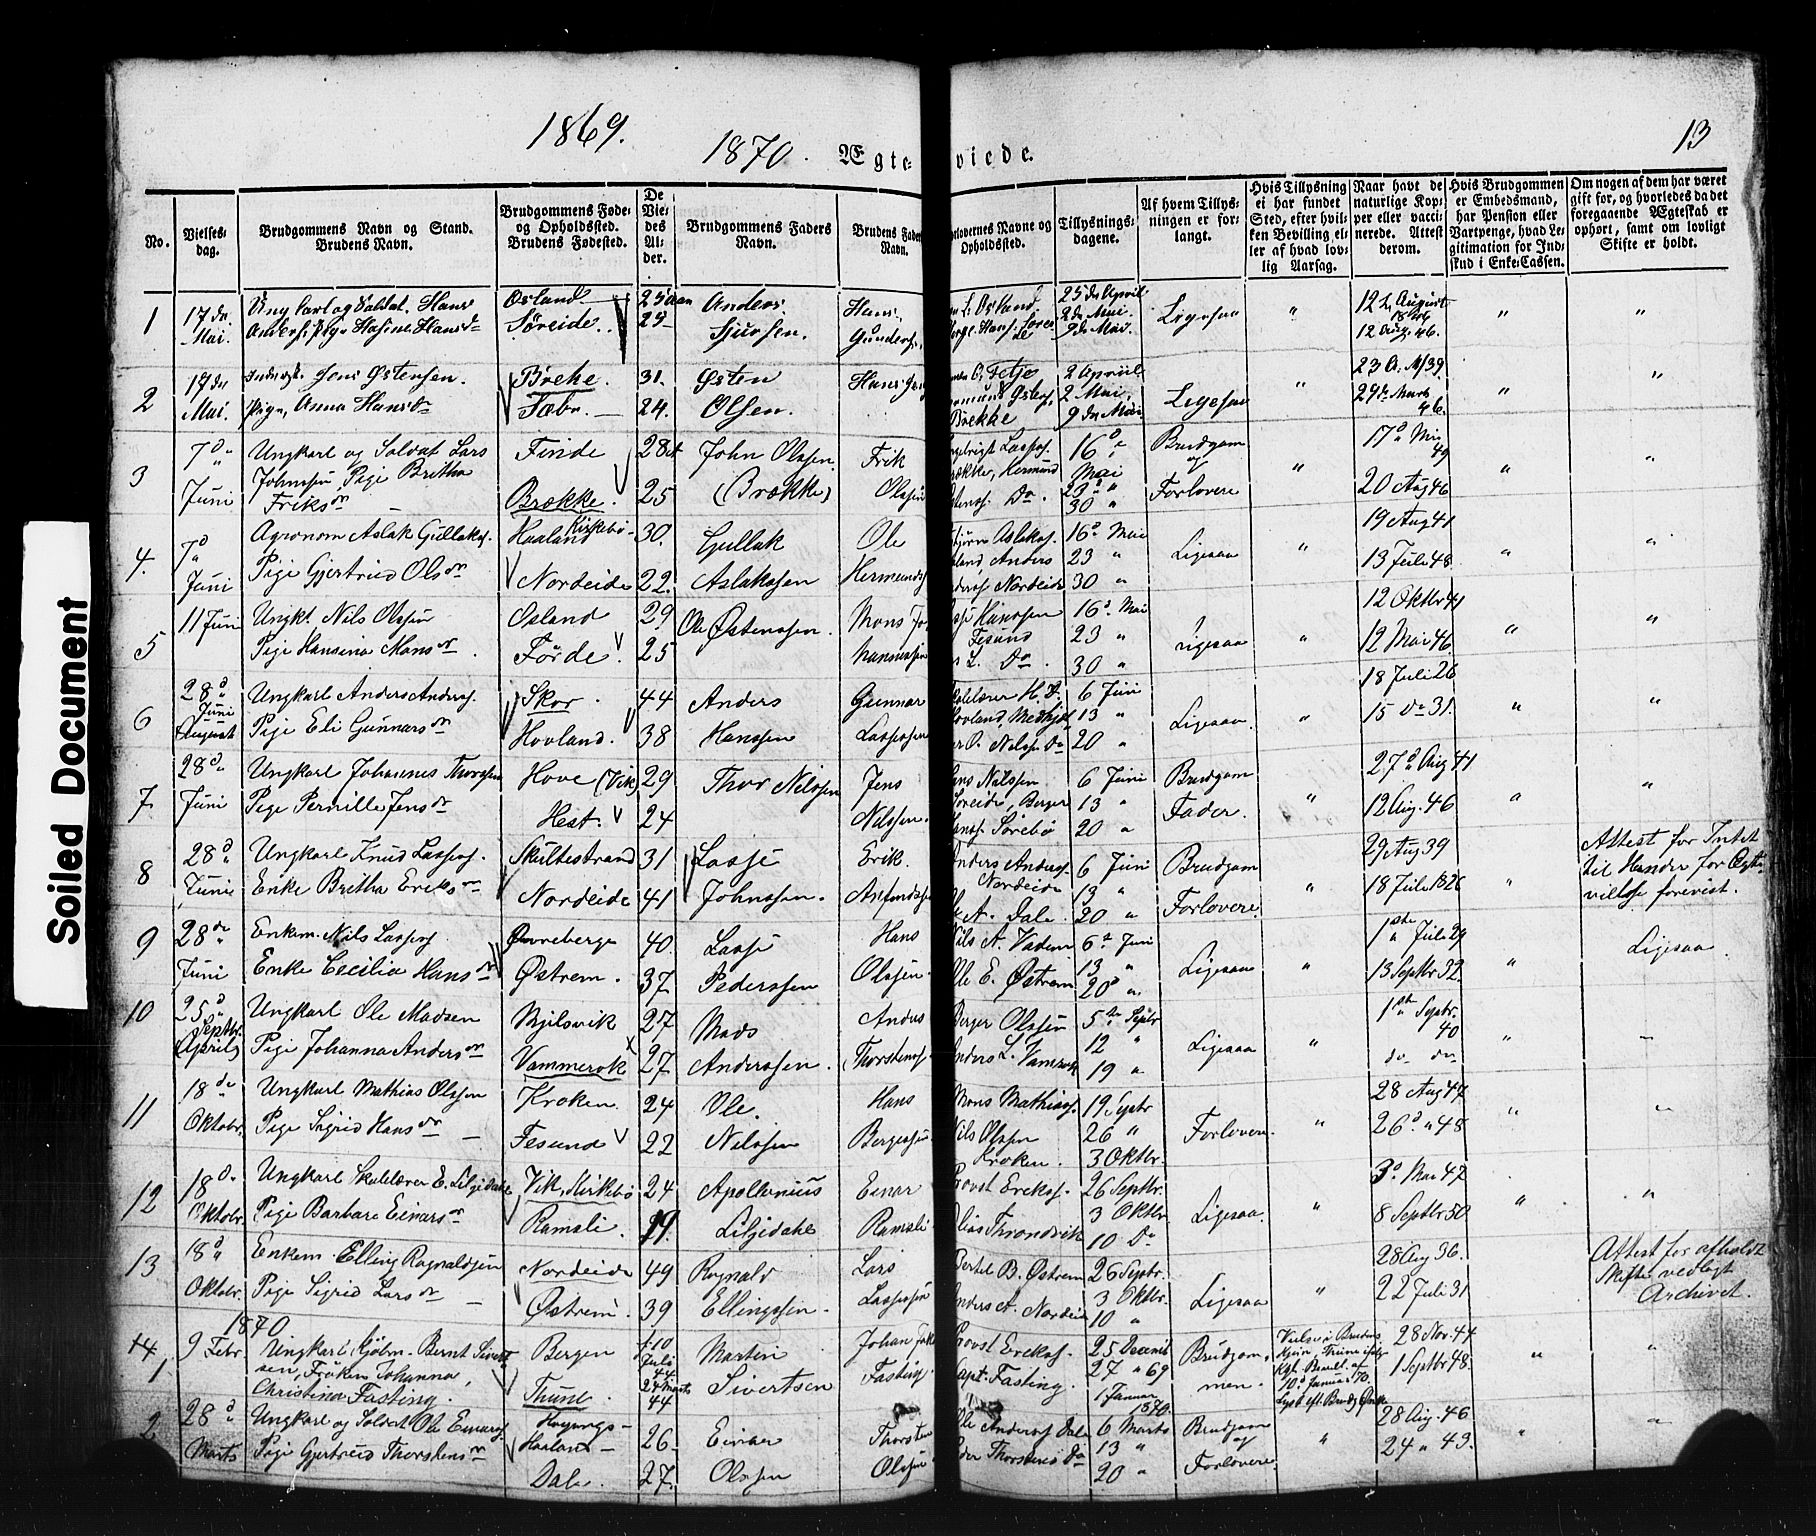 Soiled Document
1869.
1870.
Ægte- viede.
13
No.
Vielses-dag.
Brudgommens Navn og Stand. Brudens Navn.
Brudgommens Føde- og Opholdssted. Brudens Fødested.
De Vie-des Al-der.
Brudgommens Faders Navn.
Brudens Faders Navn.
Forlovernes Navne og Opholdssted.
Tillysnings-dagene.
Af hvem Tillys-ningen er for-langt.
Hvis Tillysning ei har fundet Sted, efter hvil-ken Bevilling el-ler af hvad lov-lig Aarsag.
Naar havt de naturlige Kop-per eller vacci-nerede. Attest derom.
Hvis Brudgommen er Embedsmand, har Pension eller Vartpenge, hvad Le-gitimation for Ind-skud i Enke-Cassen.
Om nogen af dem har været gift før, og hvorledes da det foregaaende Ægteskab er ophørt, samt om lovligt Skifte er holdt.
1 17 de Mai. Ung Karl og Soldat Hans Anders. Pige Hasine Hansdr
Osland Søreide. 25 Aar 25 Anders Sjursen. Hans Gunders.
25 de April 2 de Mai 9 de Mai. Ligesaa " 12 August 1846 12 Aug. 46. " "
2 17 de Mai. Jens Østensen. Pige Anna Hansdr
Brekke. Tæbr. 31. 24. Østen Olsen. Hans
Tetje Brekke 2 April 2 Mai, 9 de Mai. Ligesaa " 23 39. 29 de Marts 46. " "
3 7 d Juni Ungkarl og Soldat Lars Johnssen Pige Britha Eriksdr
Finde Brække. 28 25 John Olssen. (Brække) Erik Olssen
16 d Mai 23 d " 30 " Brudgom og Forlovere " 17 d Mai 49 20 Aug 46 " "
4. 7 d Juni Agronom Aslak Gullaks. Pige Gjertrud Olsdr
Haaland Kirkebø. Nordeide 30. 22. Gullak Aslakssen Ole Hermunds
Aslaks. Anders Nordeide 16 d Mai 23 " 30 " Ligesaa " 19 Aug 41 13 Juli 48. " "
5 11 Juni Ungk. Nils Olssen Pige Hansina Mansdr
Osland Førde. 29 25 Ole Østenssen. Mons Johannessen
Hanssen Fesund L. Do. 16 d Mai 23 " 30 " Ligesaa " 12 Oktbr 41 12 Mai 46 " "
6 28 d Juni (August Ungkarl Anders Anders. Pige Eli Gunnarsdr
Skor. Hovland. 44 38 Anders Hanssen Gunnar Lassessen
H. D. Hovland, Nilss. Do 6 Juni 13 " 20 " Ligesaa " 18 Juli 26 15 do 31. " "
7. 28 d Juni Ungkarl Johannes Thorssen Pige Pernille Jensdr
Hove (Vik) Hest. 29 24 Thor Nilssen Jens Nilssen.
Nilssen Søreide, Berger Hans. Sørebø 6 Juni 13 " 20 " Brudgom Fader. " 27 d Aug 41 12 Aug. 46 " "
8 28 d Juni Ungkarl Knud Lasses. Enke Britha Eriksdr
Skultestrand Nordeide 31 41 Lasse Johnssen. Erik.
Anders Anders. Nordeide A. Dale. 6 Juni 13 " 20 " Brudgom Forlovere. 29 Aug 39 18 Juli 1826 " Attest for Intet til Hinder for Ægtevielse forevist.
9 28 de Juni Enkem. Nils Lasses. Enke Cecilia Hansdr
Øvreberge Østrem. 40. 37. Lasse Pederssen Hans Olssen
Nils A. Vadem Ole E. Østrem 6 d Juni 13 " 20 d " Ligesaa " 1 ste Juli 29 13 Septbr 32. " Ligesaa
10 25 d Septbr. (April) Ungkarl Ole Madsen Pige Johanna Andersdr
Mjilsvik Vammerok 27 27 Mads Anderssen. Anders Thorstens.
Berger Olssen Anders L. 5 te Septbr 12 " 19 " Ligesaa " 1 ste Septbr. 40 do do " "
11 18 de Oktobr. Ungkarl Mathias Olssen Pige Sigrid Hansdr
Kroken. Fesund 24 22 Ole. Nilssen Hans Bergessen
Mons Mathias. Nils Olssen Kroken. 19 Septbr 26 " 3 Oktbr. Forlovere. " 28 Aug 47. 26 d " 48 " "
12 18 d. Oktobr. Ungkarl Skolelærer E. Liljedahl Pige Barbara Einarsdr
Vik, Kirkebø Ramsli. 24 19. Apollonius Liljedahl Einar Ramsli
Provst Ericks. Elias Throndvik 26 Septbr. 3 Oktbr. 10 Do Ligesaa. " 3 d Mai 47. 8 Septbr 50 " "
13 18 d Oktobr. Enkem. Elling Ragnaldsen Pige Sigrid Larsdr
Nordeide Østrem. 49 39 Ragnald Ellingssen. Lars Lassessen
Bertel B. Østrem Anders A. Nordeide 26 Septbr. 3 Oktbr. 10 " Ligesaa " 28 Aug 36. 22 Juli 31 Attest for afholdt Skifte vedlagt Archivet.
1870
1 9 Febr. Ungkarl Kjøbm. Bernt Sivertsen, Frøken Johanna, Christina Fasting.
Bergen Thune 10 Juli 44 24 Marts 44 Martin Sivertsen Johan Fasting
Provst Ericks. Capt. Fasting. 25 Decemb 27 " 69 1 Januar 1870. Brudgommen. 28 Nov. 44 1 Septbr 48. " "
2 28 d Marts Ungkarl og Soldat Ole Einars. Pige Gjertrud Thorstensdr
Haaland Dale. 26 27. Einar Olssen Thorsten Olssen
Ole Anders. Dale Thorstens Do 6 Marts 13 " 20 " Brudgom og Forlovere. " 28 Aug. 46 24 " 43. " "